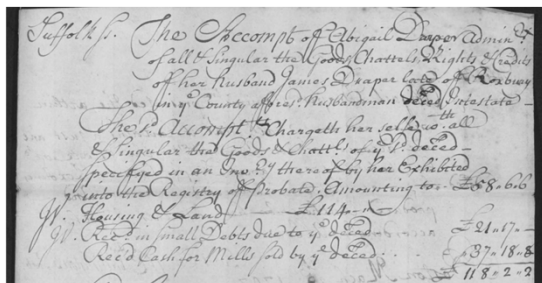 Suffolk ss. The Accompt of Abigail Draper Admin.x
of all & Singular the Goods, Chattels, Rights & Credits
of her Husband James Draper late of Roxbury
in ye County affores.d Husbandman deced Intestate —
The s.d Accompt.t Chargeth her selfe wth all
& Singular the Goods & Chatt.ls of ye s.d deced —
specifyed in an Inv.ry thereof by her Exhibited
into the Registry of Probate. Amounting to - £58"6"6
Housing & Land — £114"—"—
Rec.d in small Debts due to ye deced £21"17"—
Rec'd Cash for Mills sold by ye deced . . "37"18"8
118"2"2